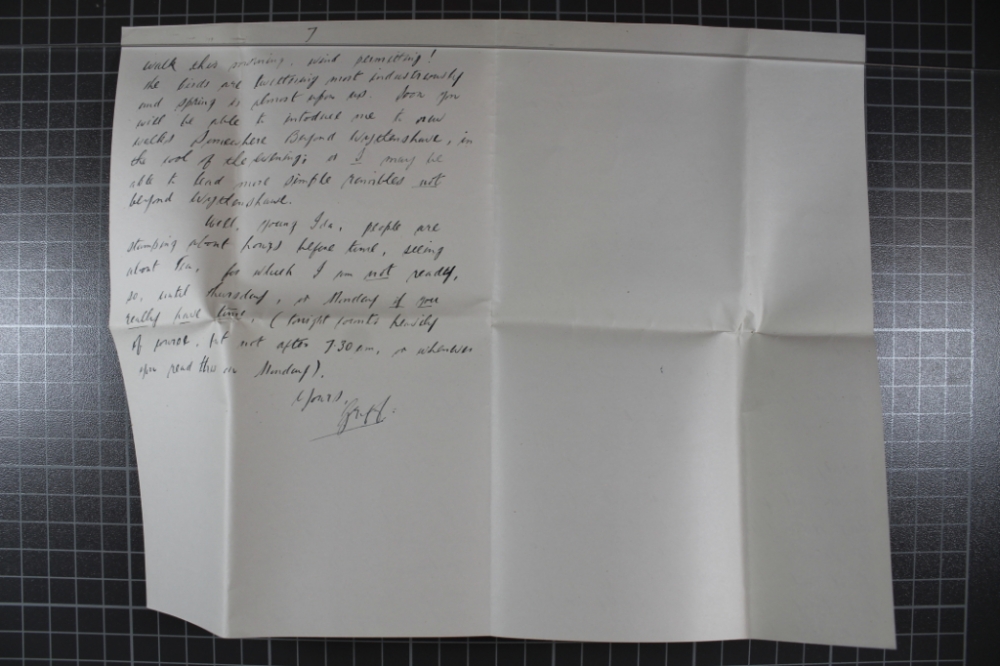 7
walk this morning, wind permitting!
the birds are twittering most industriously
and spring is almost upon us. Soon you
will be able to introduce me to new
walks somewhere Beyond Wythenshawe, in
the cool of the evening; or I may be
able to lead more simple rambles not
beyond Wythenshawe.
Well, young Ida, people are
stumping about hours before time, seeing
about Tea, for which I am not ready,
so, until Thursday, or Monday if you
really have time, (Tonight sounds heavily
of, but not after 7.30 pm, or whenever
you read this on Monday).
Yours,